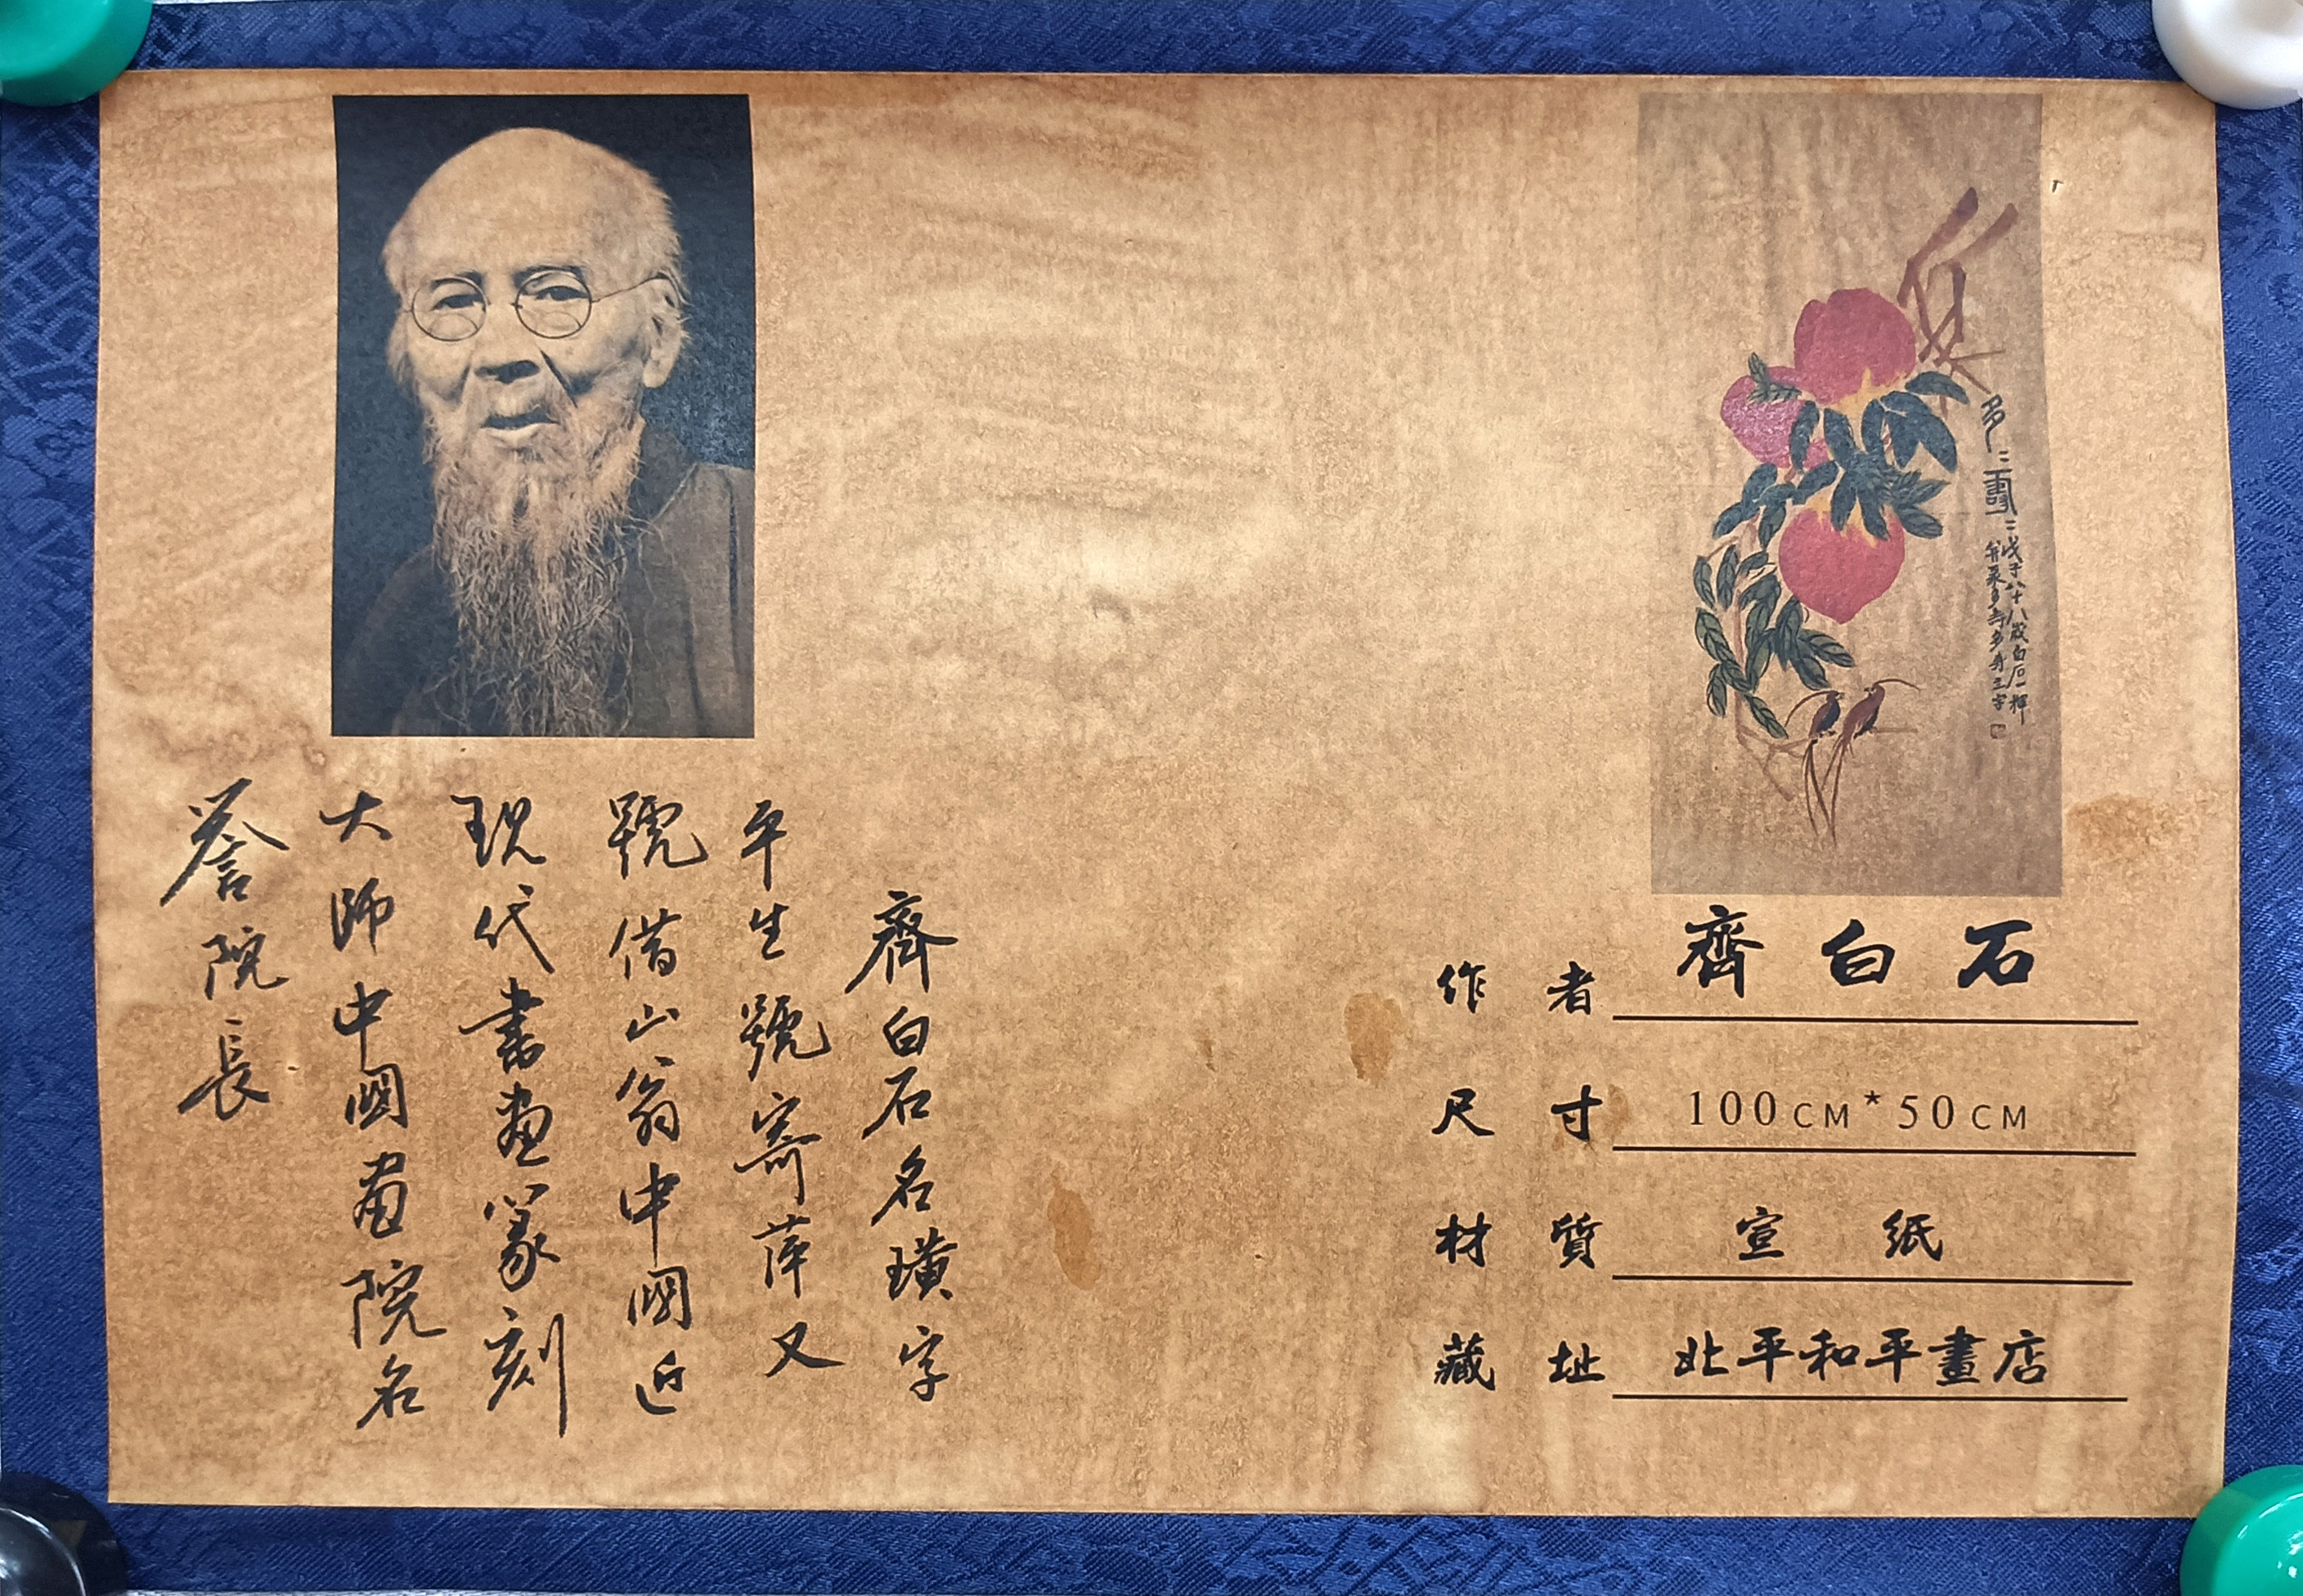 多二壽二
戊子八十八歲白石一揮
作者 齊白石
尺寸 100CM*50CM
材質 宣紙
藏址 北平和平畫店
齊白石名璜字
平生號寄萍又
號借山翁中國近
現代書畫篆刻
大師中國畫院名
誉院長